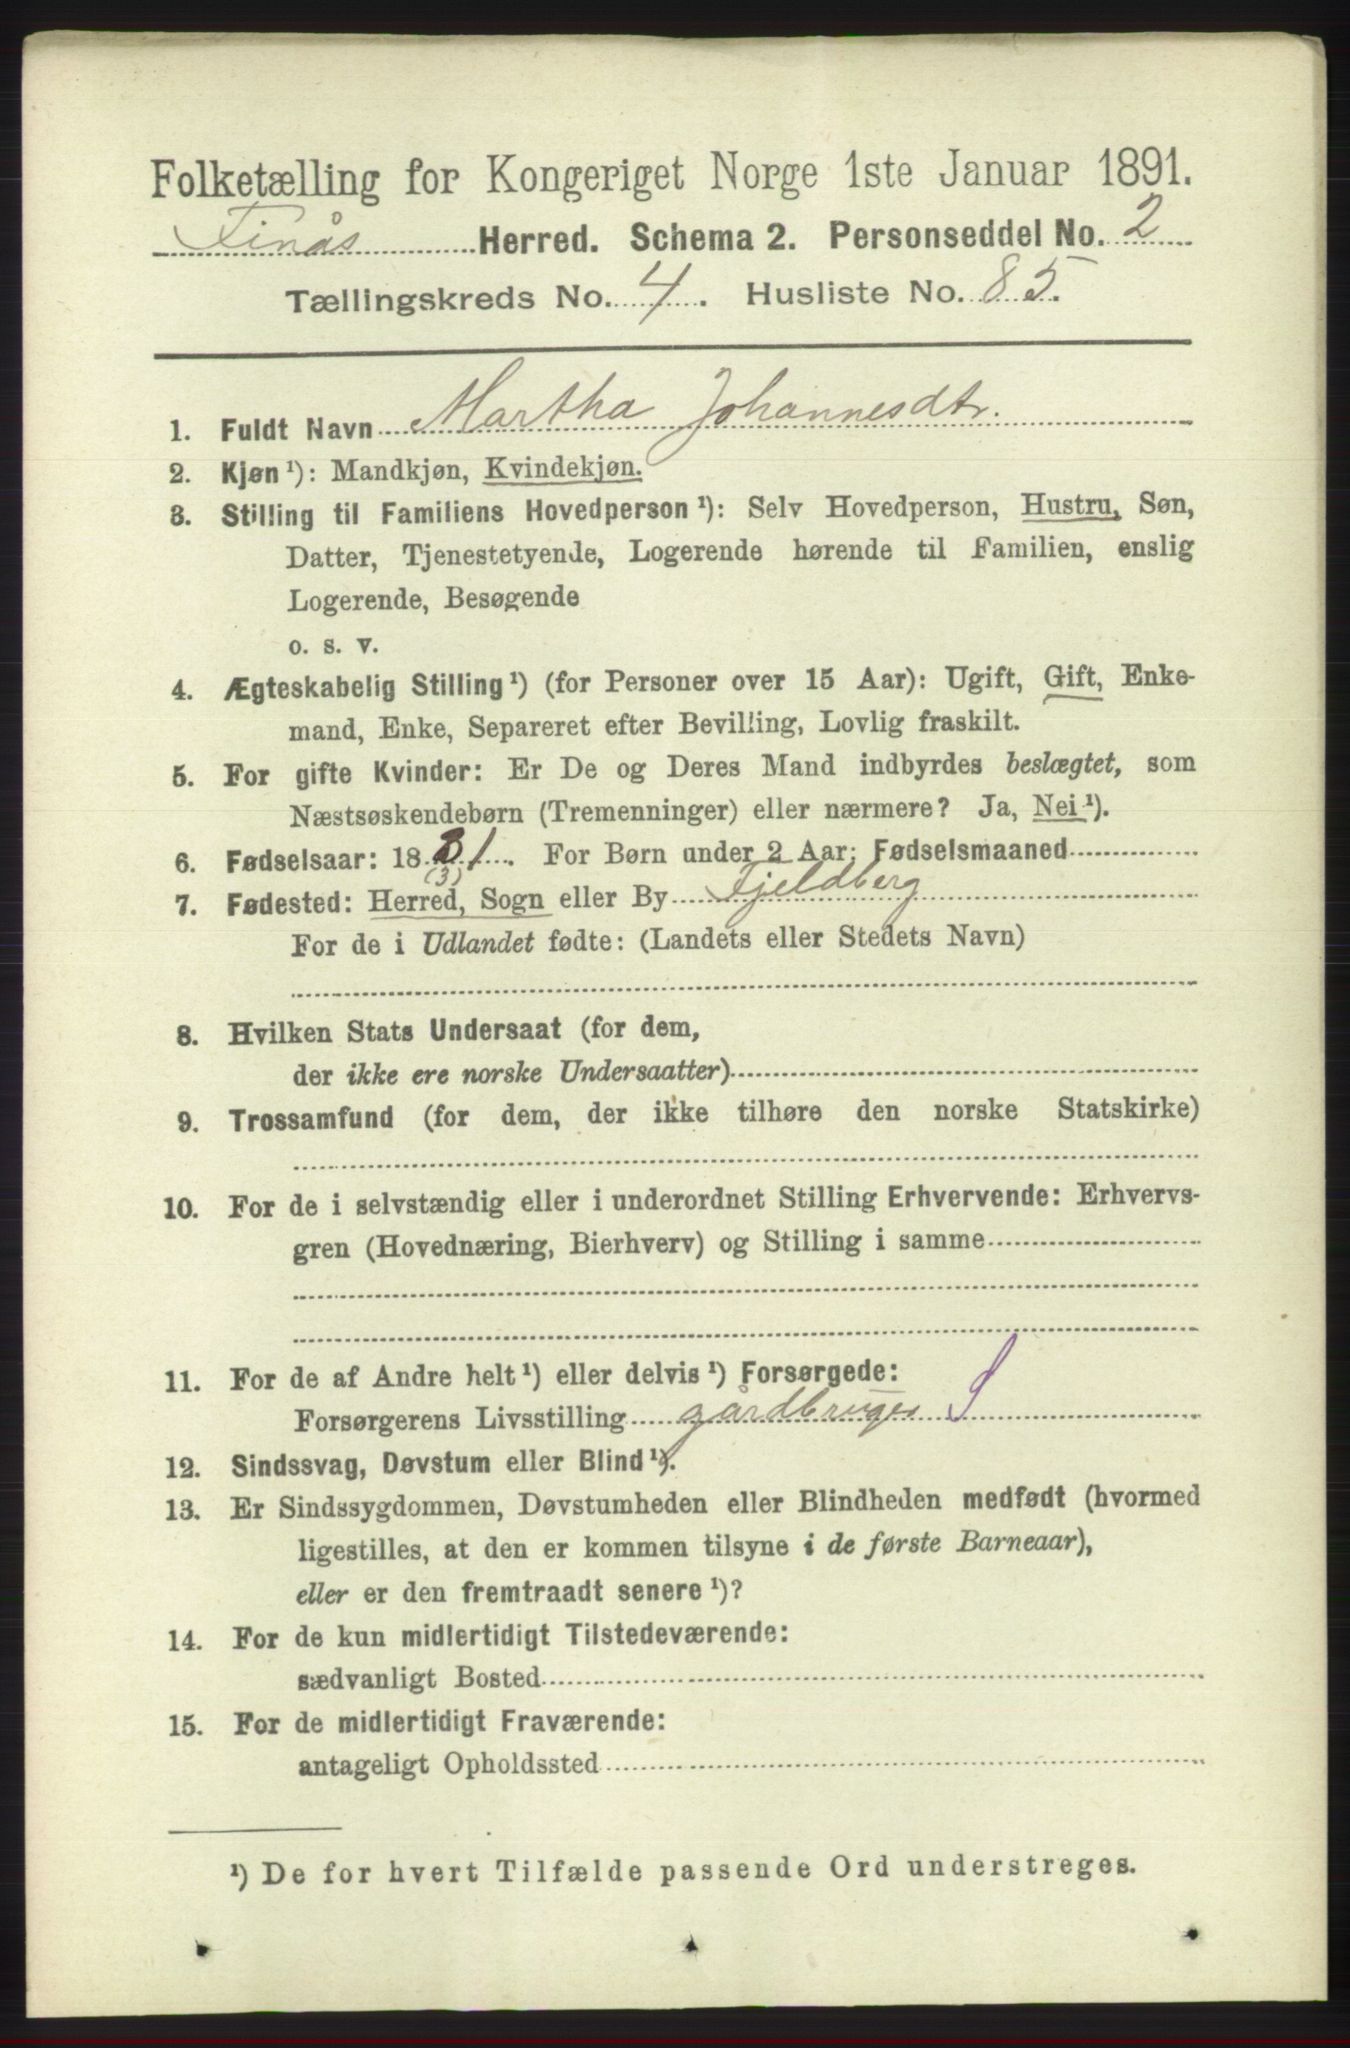 Folketælling for Kongeriget Norge 1ste Januar 1891.
Finås Herred. Schema 2. Personseddel No. 2
Tællingskreds No. 4. Husliste No. 85.
1. Fuldt Navn Martha Johannesdtr.
2. Kjøn ¹): Mandkjøn, Kvindekjøn.
3. Stilling til Familiens Hovedperson ¹): Selv Hovedperson, Hustru, Søn,
Datter, Tjenestetyende, Logerende hørende til Familien, enslig
Logerende, Besøgende
o. s. v.
4. Ægteskabelig Stilling ¹) (for Personer over 15 Aar): Ugift, Gift, Enke-
mand, Enke, Separeret efter Bevilling, Lovlig fraskilt.
5. For gifte Kvinder: Er De og Deres Mand indbyrdes beslægtet, som
Næstsøskendebørn (Tremenninger) eller nærmere? Ja, Nei ¹).
6. Fødselsaar: 1831. For Børn under 2 Aar: Fødselsmaaned
(3)
7. Fødested: Herred, Sogn eller By Fjeldberg
For de i Udlandet fødte: (Landets eller Stedets Navn)
8. Hvilken Stats Undersaat (for dem,
der ikke ere norske Undersaatter)
9. Trossamfund (for dem, der ikke tilhøre den norske Statskirke)
10. For de i selvstændig eller i underordnet Stilling Erhvervende: Erhvervs-
gren (Hovednæring, Bierhverv) og Stilling i samme
11. For de af Andre helt ¹) eller delvis ¹) Forsørgede:
Forsørgerens Livsstilling gårdbruger S
12. Sindssvag, Døvstum eller Blind ¹).
13. Er Sindssygdommen, Døvstumheden eller Blindheden medfødt (hvormed
ligestilles, at den er kommen tilsyne i de første Barneaar),
eller er den fremtraadt senere ¹)?
14. For de kun midlertidigt Tilstedeværende:
sædvanligt Bosted
15. For de midlertidigt Fraværende:
antageligt Opholdssted
¹) De for hvert Tilfælde passende Ord understreges.